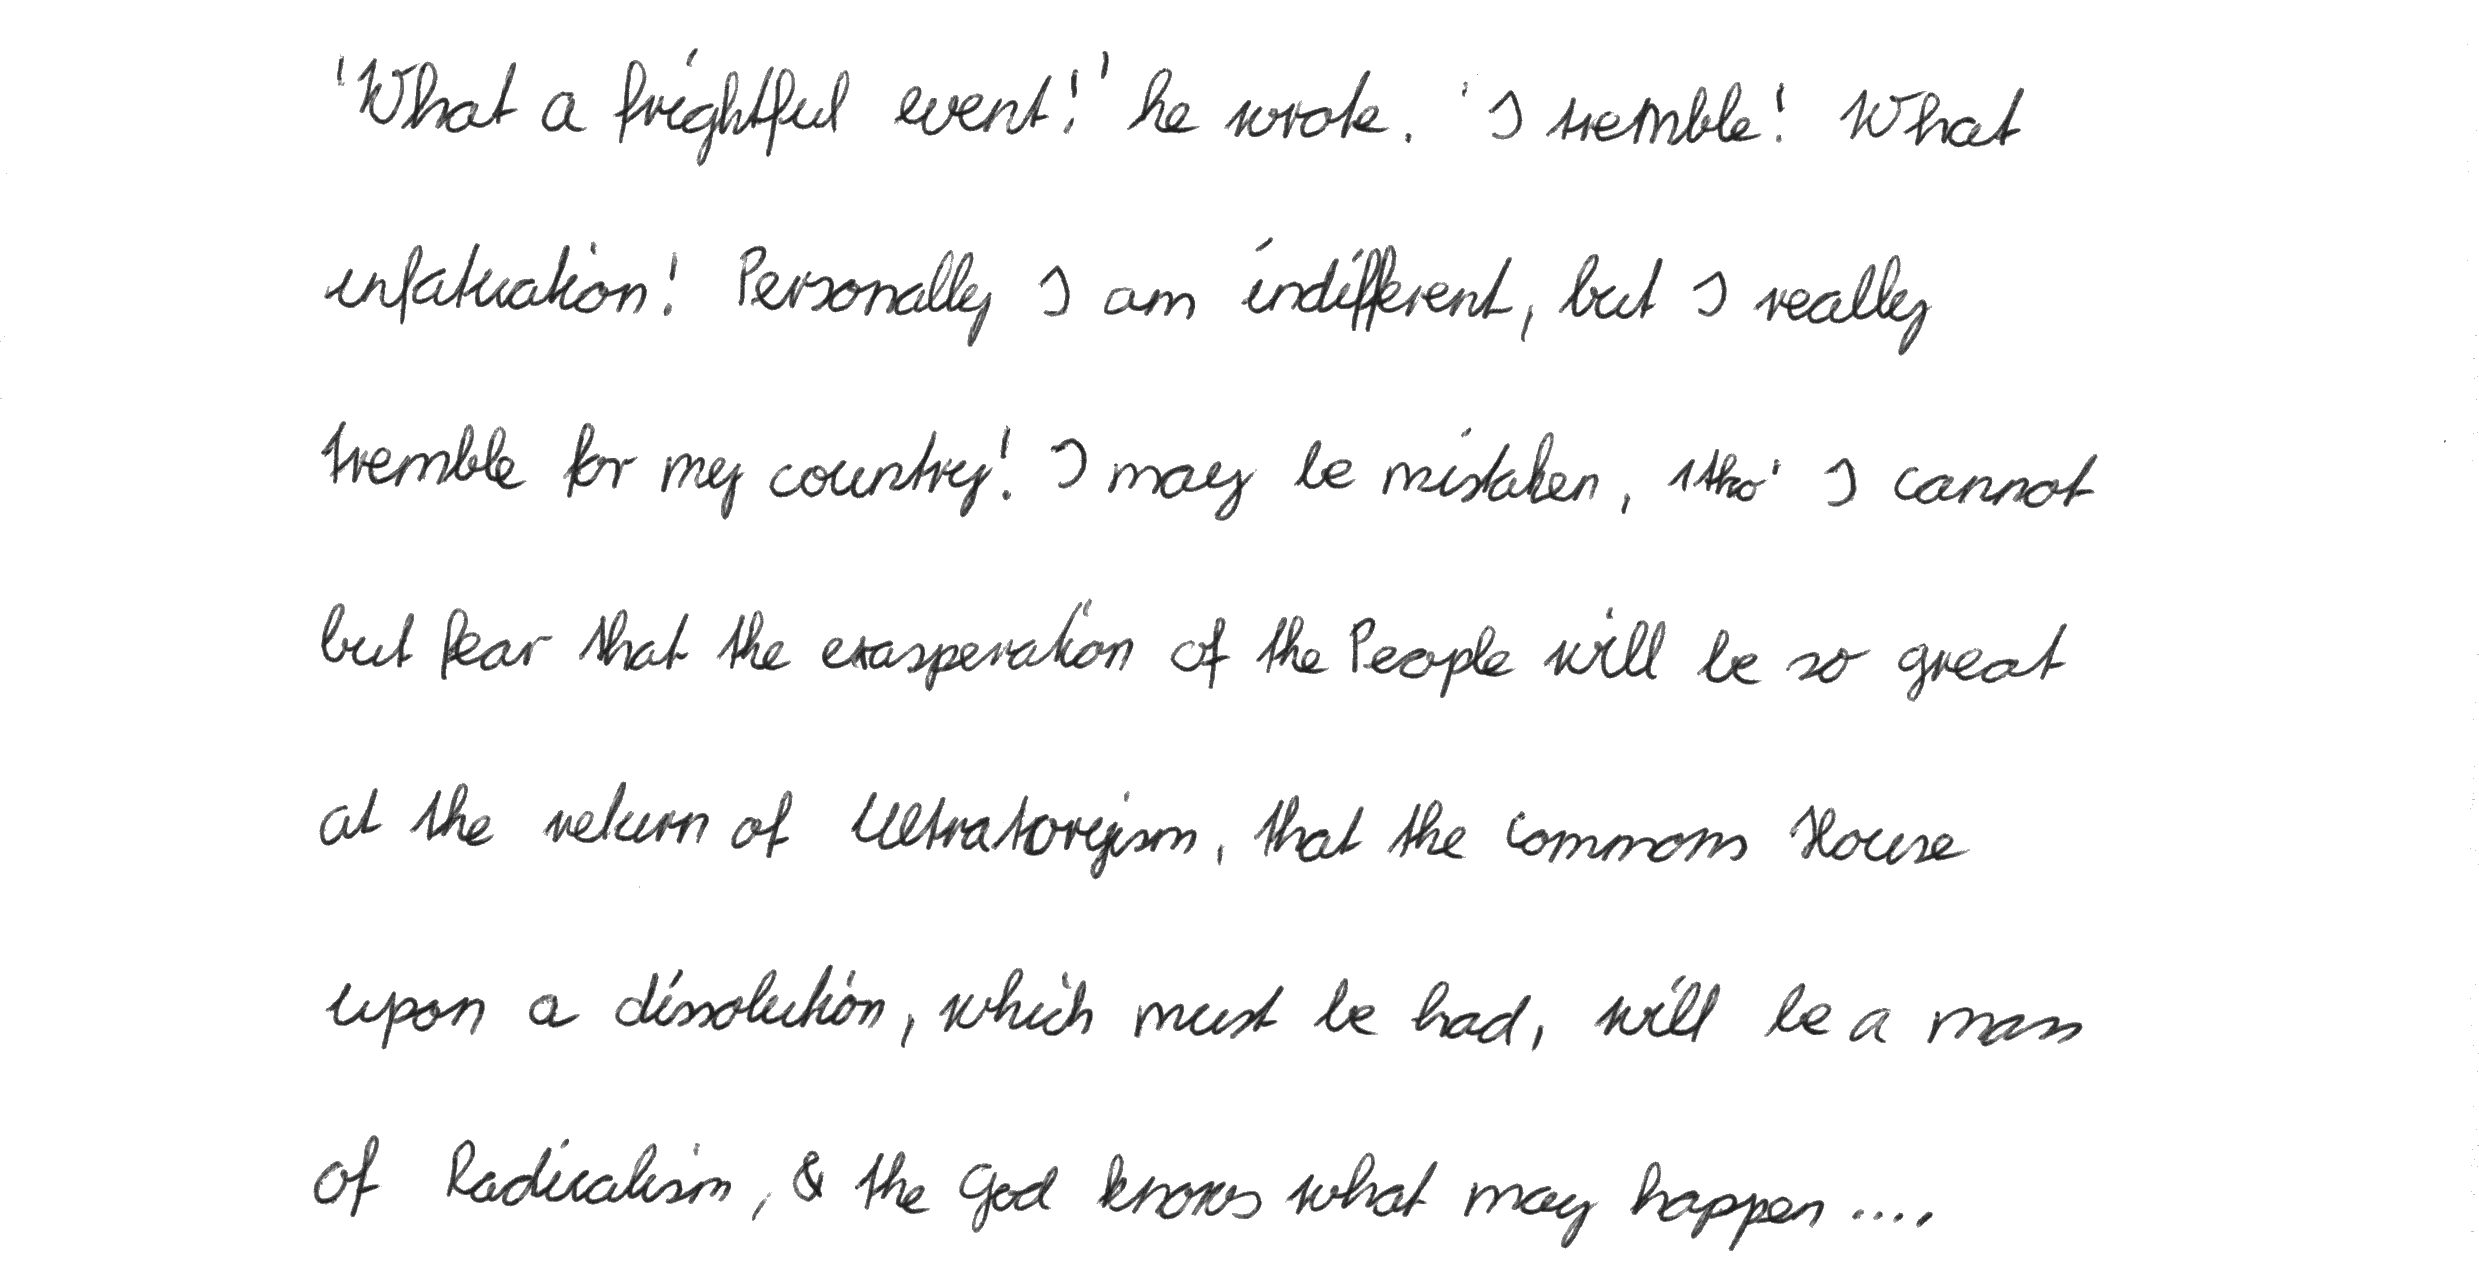 'What a frightful event!' he wrote. 'I tremble! What
infatuation! Personally I am indifferent, but I really
tremble for my country! I may be mistaken, 'tho' I cannot
but fear that the exasperation of the People will be so great
at the return of Ultratoryism, that the Commons House
upon a dissolution, which must be had, will be a mass
of Radicalism, & the God knows what may happen....